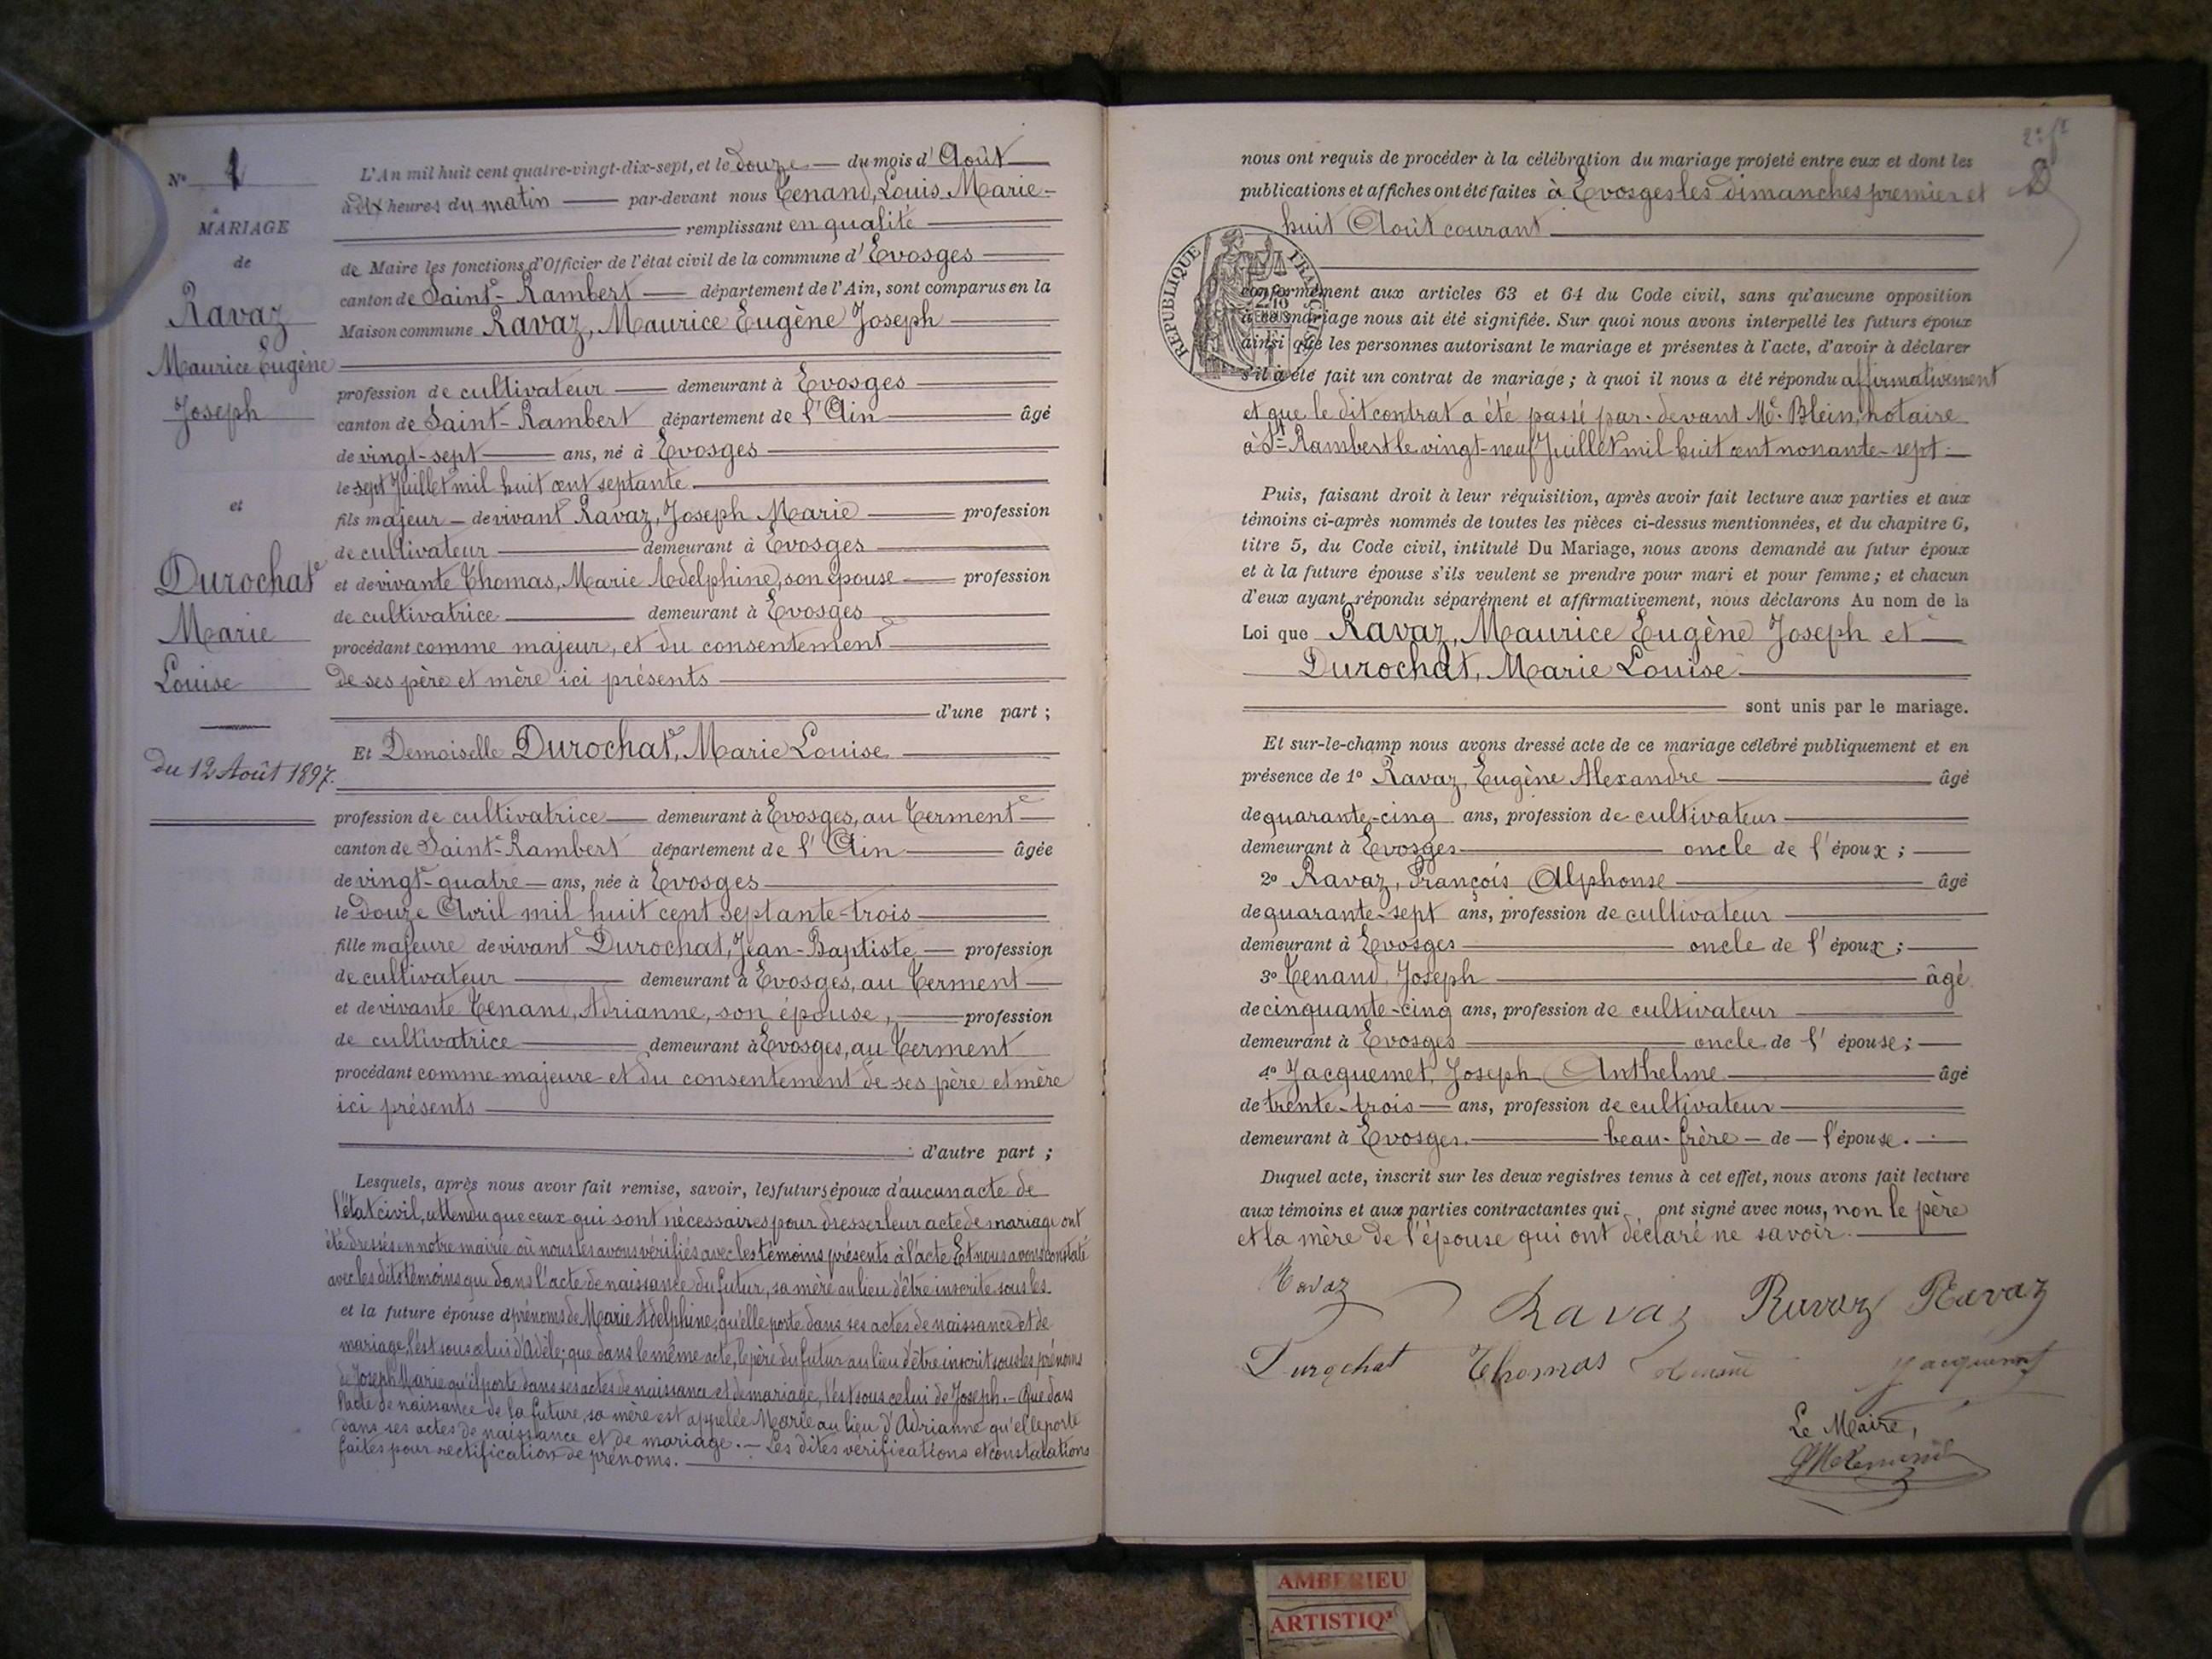 N° 1
MARIAGE
de
Ravaz
Maurice Eugène
Joseph
et
Durochat
Marie
Louise
du 12 Août 1897.
L'An mil huit cent quatre-vingt-dix-sept, et le douze du mois d'Août
à dix heures du matin par-devant nous Tenand, Louis Marie
remplissant en qualité
de Maire les fonctions d'Officier de l'état civil de la commune d'Evosges
canton de Saint-Rambert département de l'Ain, sont comparus en la
Maison commune Ravaz, Maurice Eugène Joseph
profession de cultivateur demeurant à Evosges
canton de Saint-Rambert département de l'Ain âgé
de vingt-sept ans, né à Evosges
le sept Juillet mil huit cent septante
fils majeur de vivant Ravaz, Joseph Marie profession
de cultivateur demeurant à Evosges
et de vivante Thomas, Marie Adelphine, son épouse profession
de cultivatrice demeurant à Evosges
procédant comme majeur, et du consentement
de ses père et mère ici présents
d'une part ;
Et Demoiselle Durochat, Marie Louise
profession de cultivatrice demeurant à Evosges, au Terment
canton de Saint-Rambert département de l'Ain âgée
de vingt-quatre ans, née à Evosges
le douze Avril mil huit cent septante-trois
fille majeure de vivant Durochat, Jean-Baptiste profession
de cultivateur demeurant à Evosges, au Terment
et de vivante Tenand, Adrianne, son épouse, profession
de cultivatrice demeurant à Evosges, au Terment
procédant comme majeure et du consentement de ses père et mère
ici présents
d'autre part ;
Lesquels, après nous avoir fait remise, savoir, les futurs époux d'aucun acte de
l'état civil, attendu que ceux qui sont nécessaires pour dresser leur acte de mariage ont
été dressés en notre mairie où nous les avons vérifiés avec les témoins présents à l'acte Et nous avons constaté
avec les dits témoins que dans l'acte de naissance du futur, sa mère au lieu d'être inscrite sous les
et la future épouse prénoms de Marie Adelphine, qu'elle porte dans ses actes de naissance et de
mariage, l'est sous celui d'Adèle; que dans le même acte, le père du futur au lieu d'être inscrit sous les prénoms
de Joseph Marie qu'il porte dans ses actes de naissance et de mariage, l'est sous celui de Joseph. - Que dans
l'acte de naissance de la future, sa mère est appelée Marie au lieu d'Adrianne qu'elle porte
dans ses actes de naissance et de mariage. - Les dites vérifications et constatations
faites pour rectification de prénoms.
nous ont requis de procéder à la célébration du mariage projeté entre eux et dont les
publications et affiches ont été faites à Evosges les dimanches premier et
huit Août courant
REPUBLIQUE FRANÇAISE
conformément aux articles 63 et 64 du Code civil, sans qu'aucune opposition
à ce mariage nous ait été signifiée. Sur quoi nous avons interpellé les futurs époux
ainsi que les personnes autorisant le mariage et présentes à l'acte, d'avoir à déclarer
s'il a été fait un contrat de mariage ; à quoi il nous a été répondu affirmativement
et que le dit contrat a été passé par-devant Me. Blein, notaire
à St-Rambert le vingt-neuf Juillet mil huit cent nonante-sept
Puis, faisant droit à leur réquisition, après avoir fait lecture aux parties et aux
témoins ci-après nommés de toutes les pièces ci-dessus mentionnées, et du chapitre 6,
titre 5, du Code civil, intitulé Du Mariage, nous avons demandé au futur époux
et à la future épouse s'ils veulent se prendre pour mari et pour femme ; et chacun
d'eux ayant répondu séparément et affirmativement, nous déclarons Au nom de la
Loi que Ravaz, Maurice Eugène Joseph et
Durochat, Marie Louise
sont unis par le mariage.
Et sur-le-champ nous avons dressé acte de ce mariage célébré publiquement et en
présence de 1° Ravaz, Eugène Alexandre âgé
de quarante-cinq ans, profession de cultivateur
demeurant à Evosges oncle de l'époux ;
2° Ravaz, François Alphonse âgé
de quarante-sept ans, profession de cultivateur
demeurant à Evosges oncle de l'époux ;
3° Tenand, Joseph âgé
de cinquante-cinq ans, profession de cultivateur
demeurant à Evosges oncle de l'épouse ;
4° Jacquemet, Joseph Anthelme âgé
de trente-trois ans, profession de cultivateur
demeurant à Evosges beau-frère de l'épouse.
Duquel acte, inscrit sur les deux registres tenus à cet effet, nous avons fait lecture
aux témoins et aux parties contractantes qui ont signé avec nous, non le père
et la mère de l'épouse qui ont déclaré ne savoir.
Ravaz Ravaz Ravaz Ravaz
Durochat Thomas Jacquemet
Le Maire,
AMBERIEU
ARTISTIQ